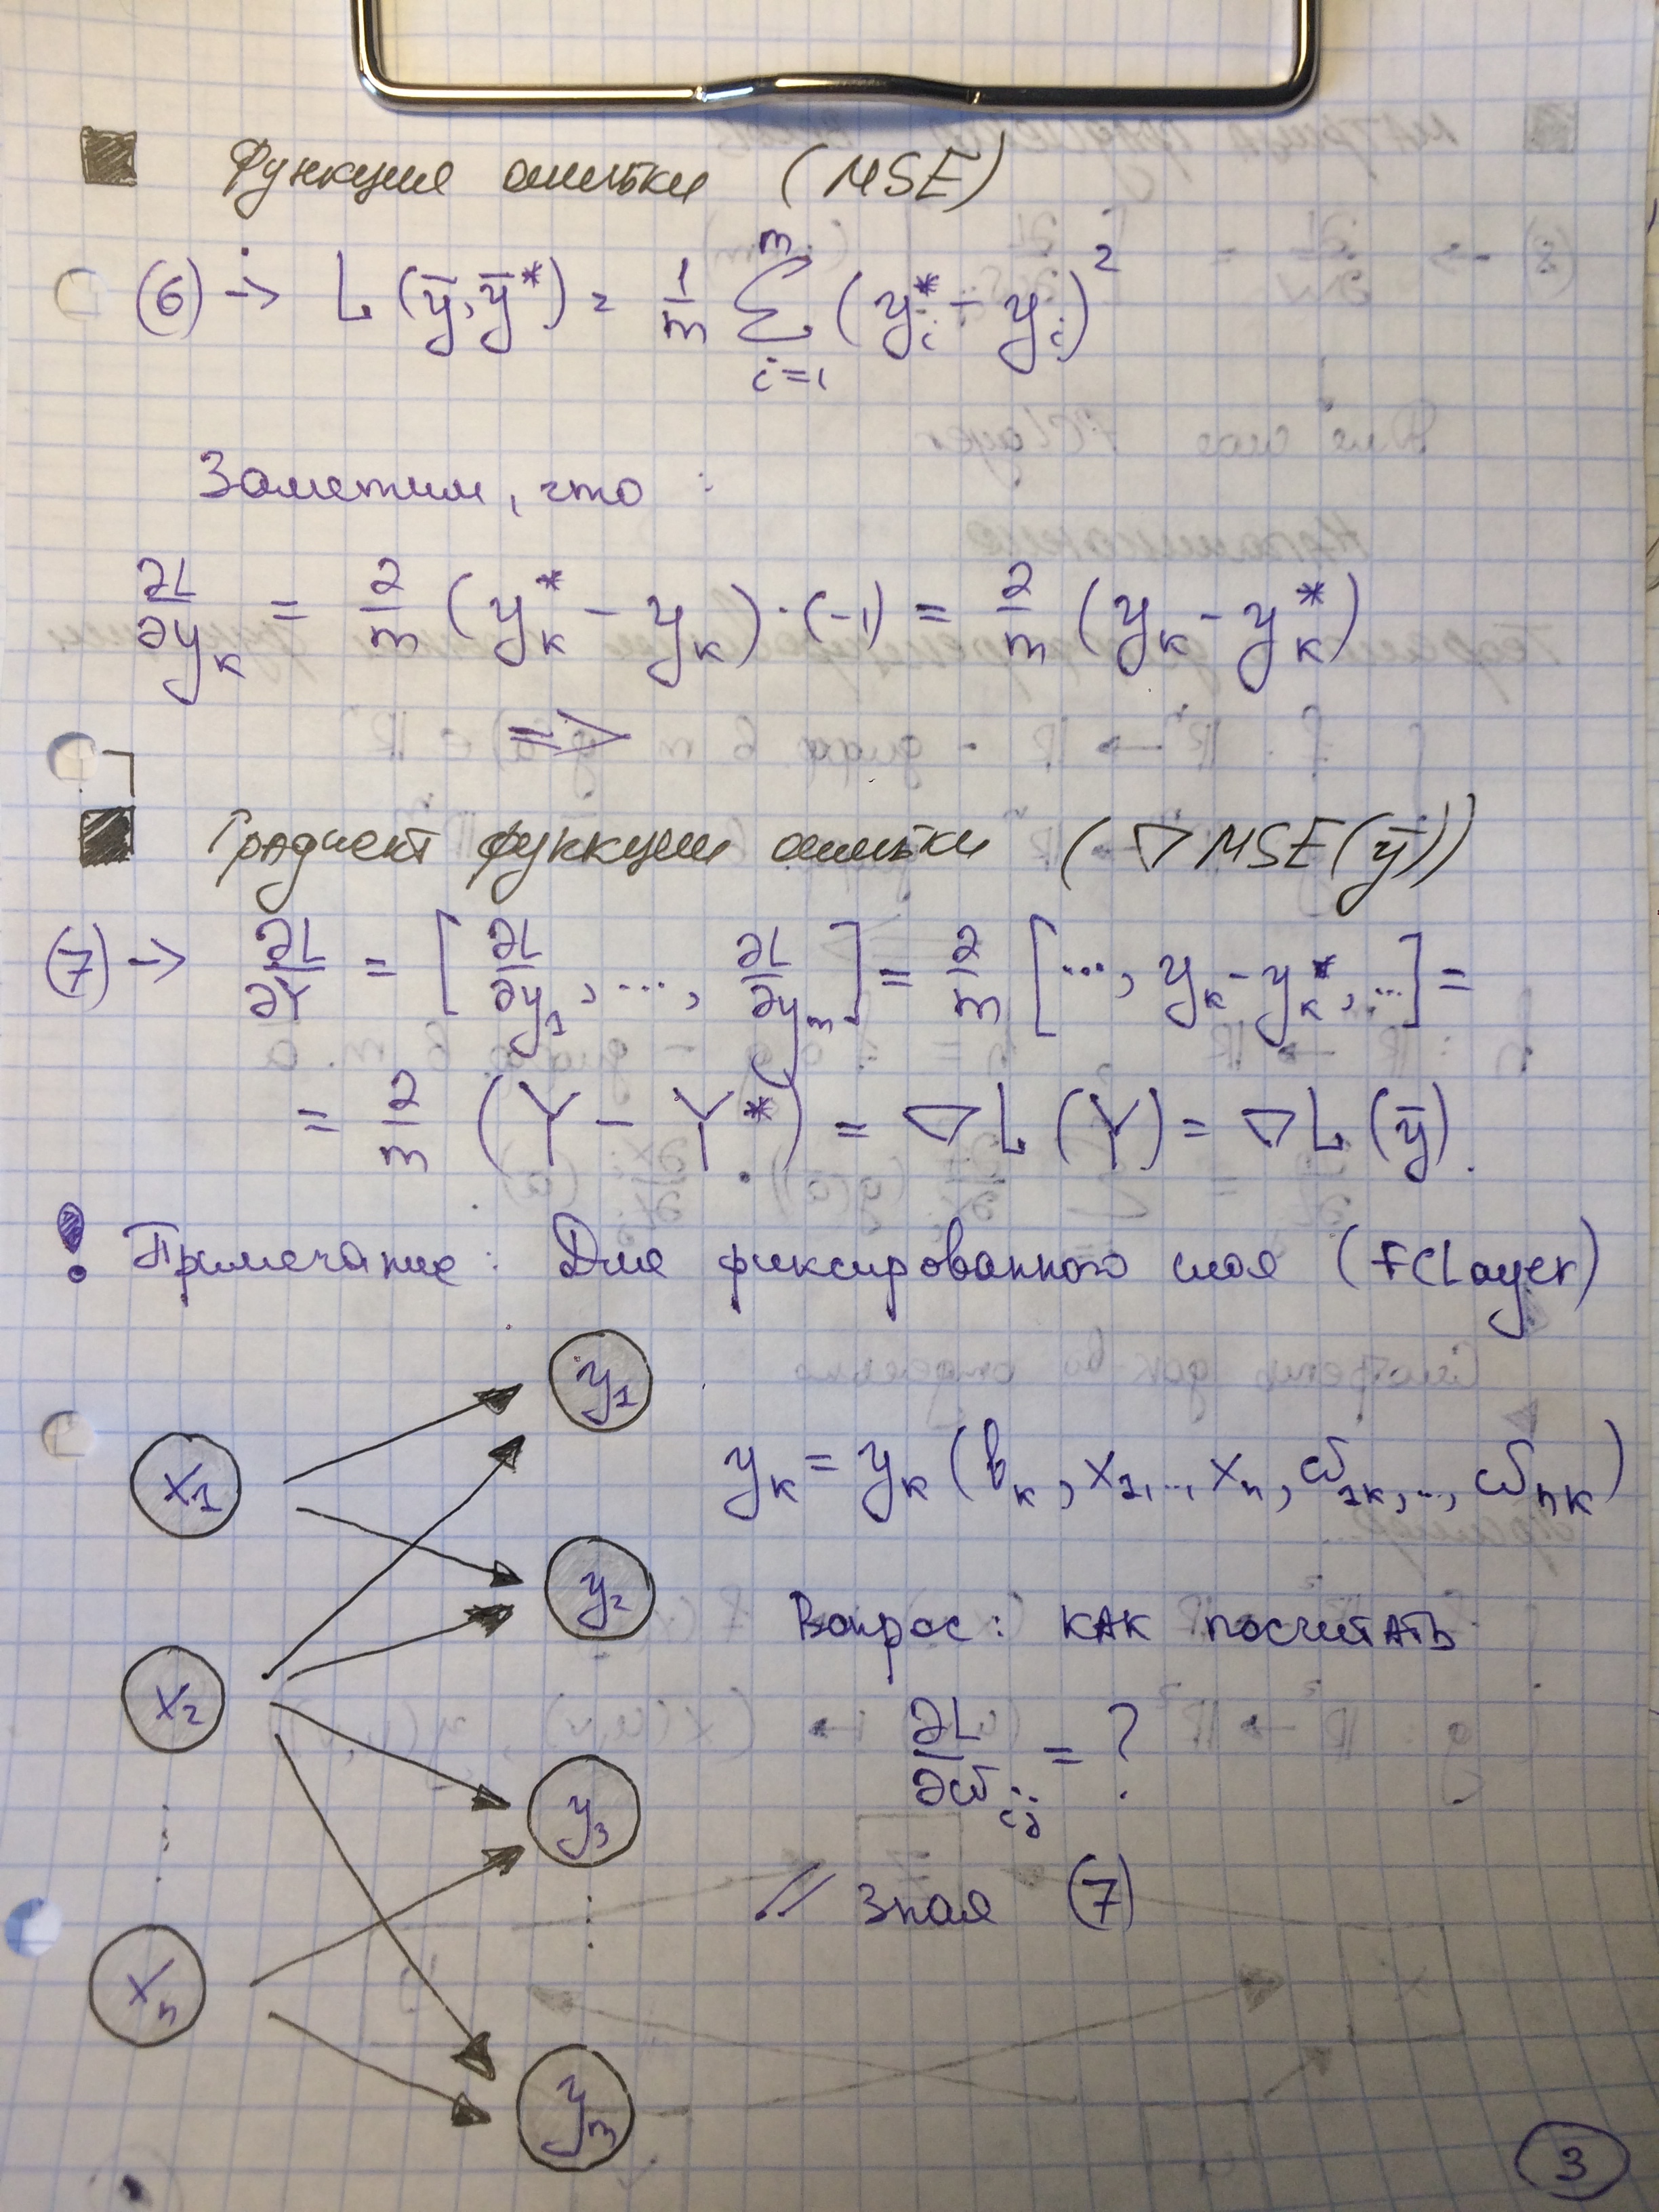 Функция ошибки (MSE)
(6) → L (ȳ, ȳ*) = 1/m ∑_{i=1}^{m} (y_i* - y_i)²
Заметим, что :
∂L/∂y_k = 2/m (y_k* - y_k) · (-1) = 2/m (y_k - y_k*)
=>
Градиент функции ошибки (∇ MSE(ȳ))
(7) → ∂L/∂Y = [∂L/∂y_1, ..., ∂L/∂y_m] = 2/m [..., y_k - y_k*, ...] =
= 2/m (Y - Y*) = ∇L (Y) = ∇L (ȳ).
! Примечание: Для фиксированного слоя (FCLayer)
y_1
x_1
y_k = y_k (b_k, x_1, .., x_n, ω_1k, .., ω_nk)
y_2
Вопрос: как посчитать
x_2
∂L/∂ω_ij = ?
y_3
// Зная (7)
x_n
y_m
3